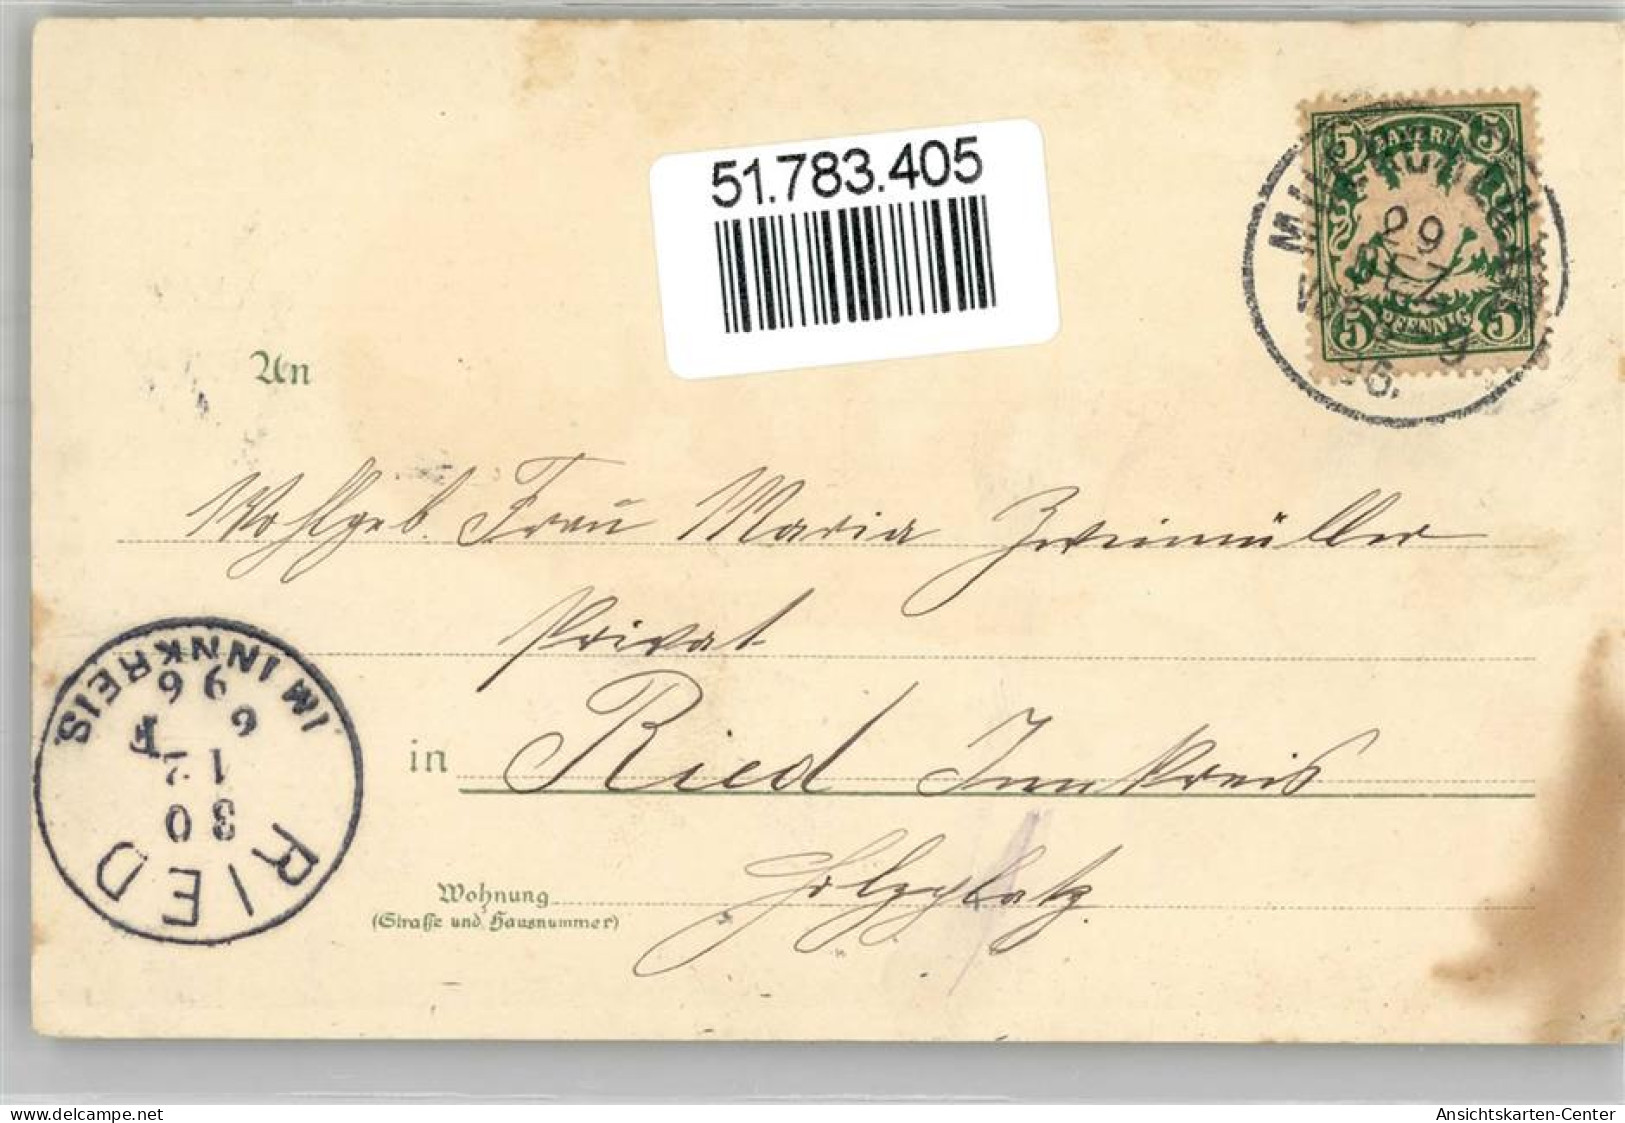 51.783.405
5 BAYERN 5
5 PFENNIG 5
29
DEZ
9
An
Wohlgeb. Frau Maria Zweimüller
Privat
in Ried Innkreis
Wohnung Holzplatz
(Straße und Hausnummer)
RIED
30
12
6 F
96
IM INNKREIS.
delcampe.net
Ansichtskarten-Center